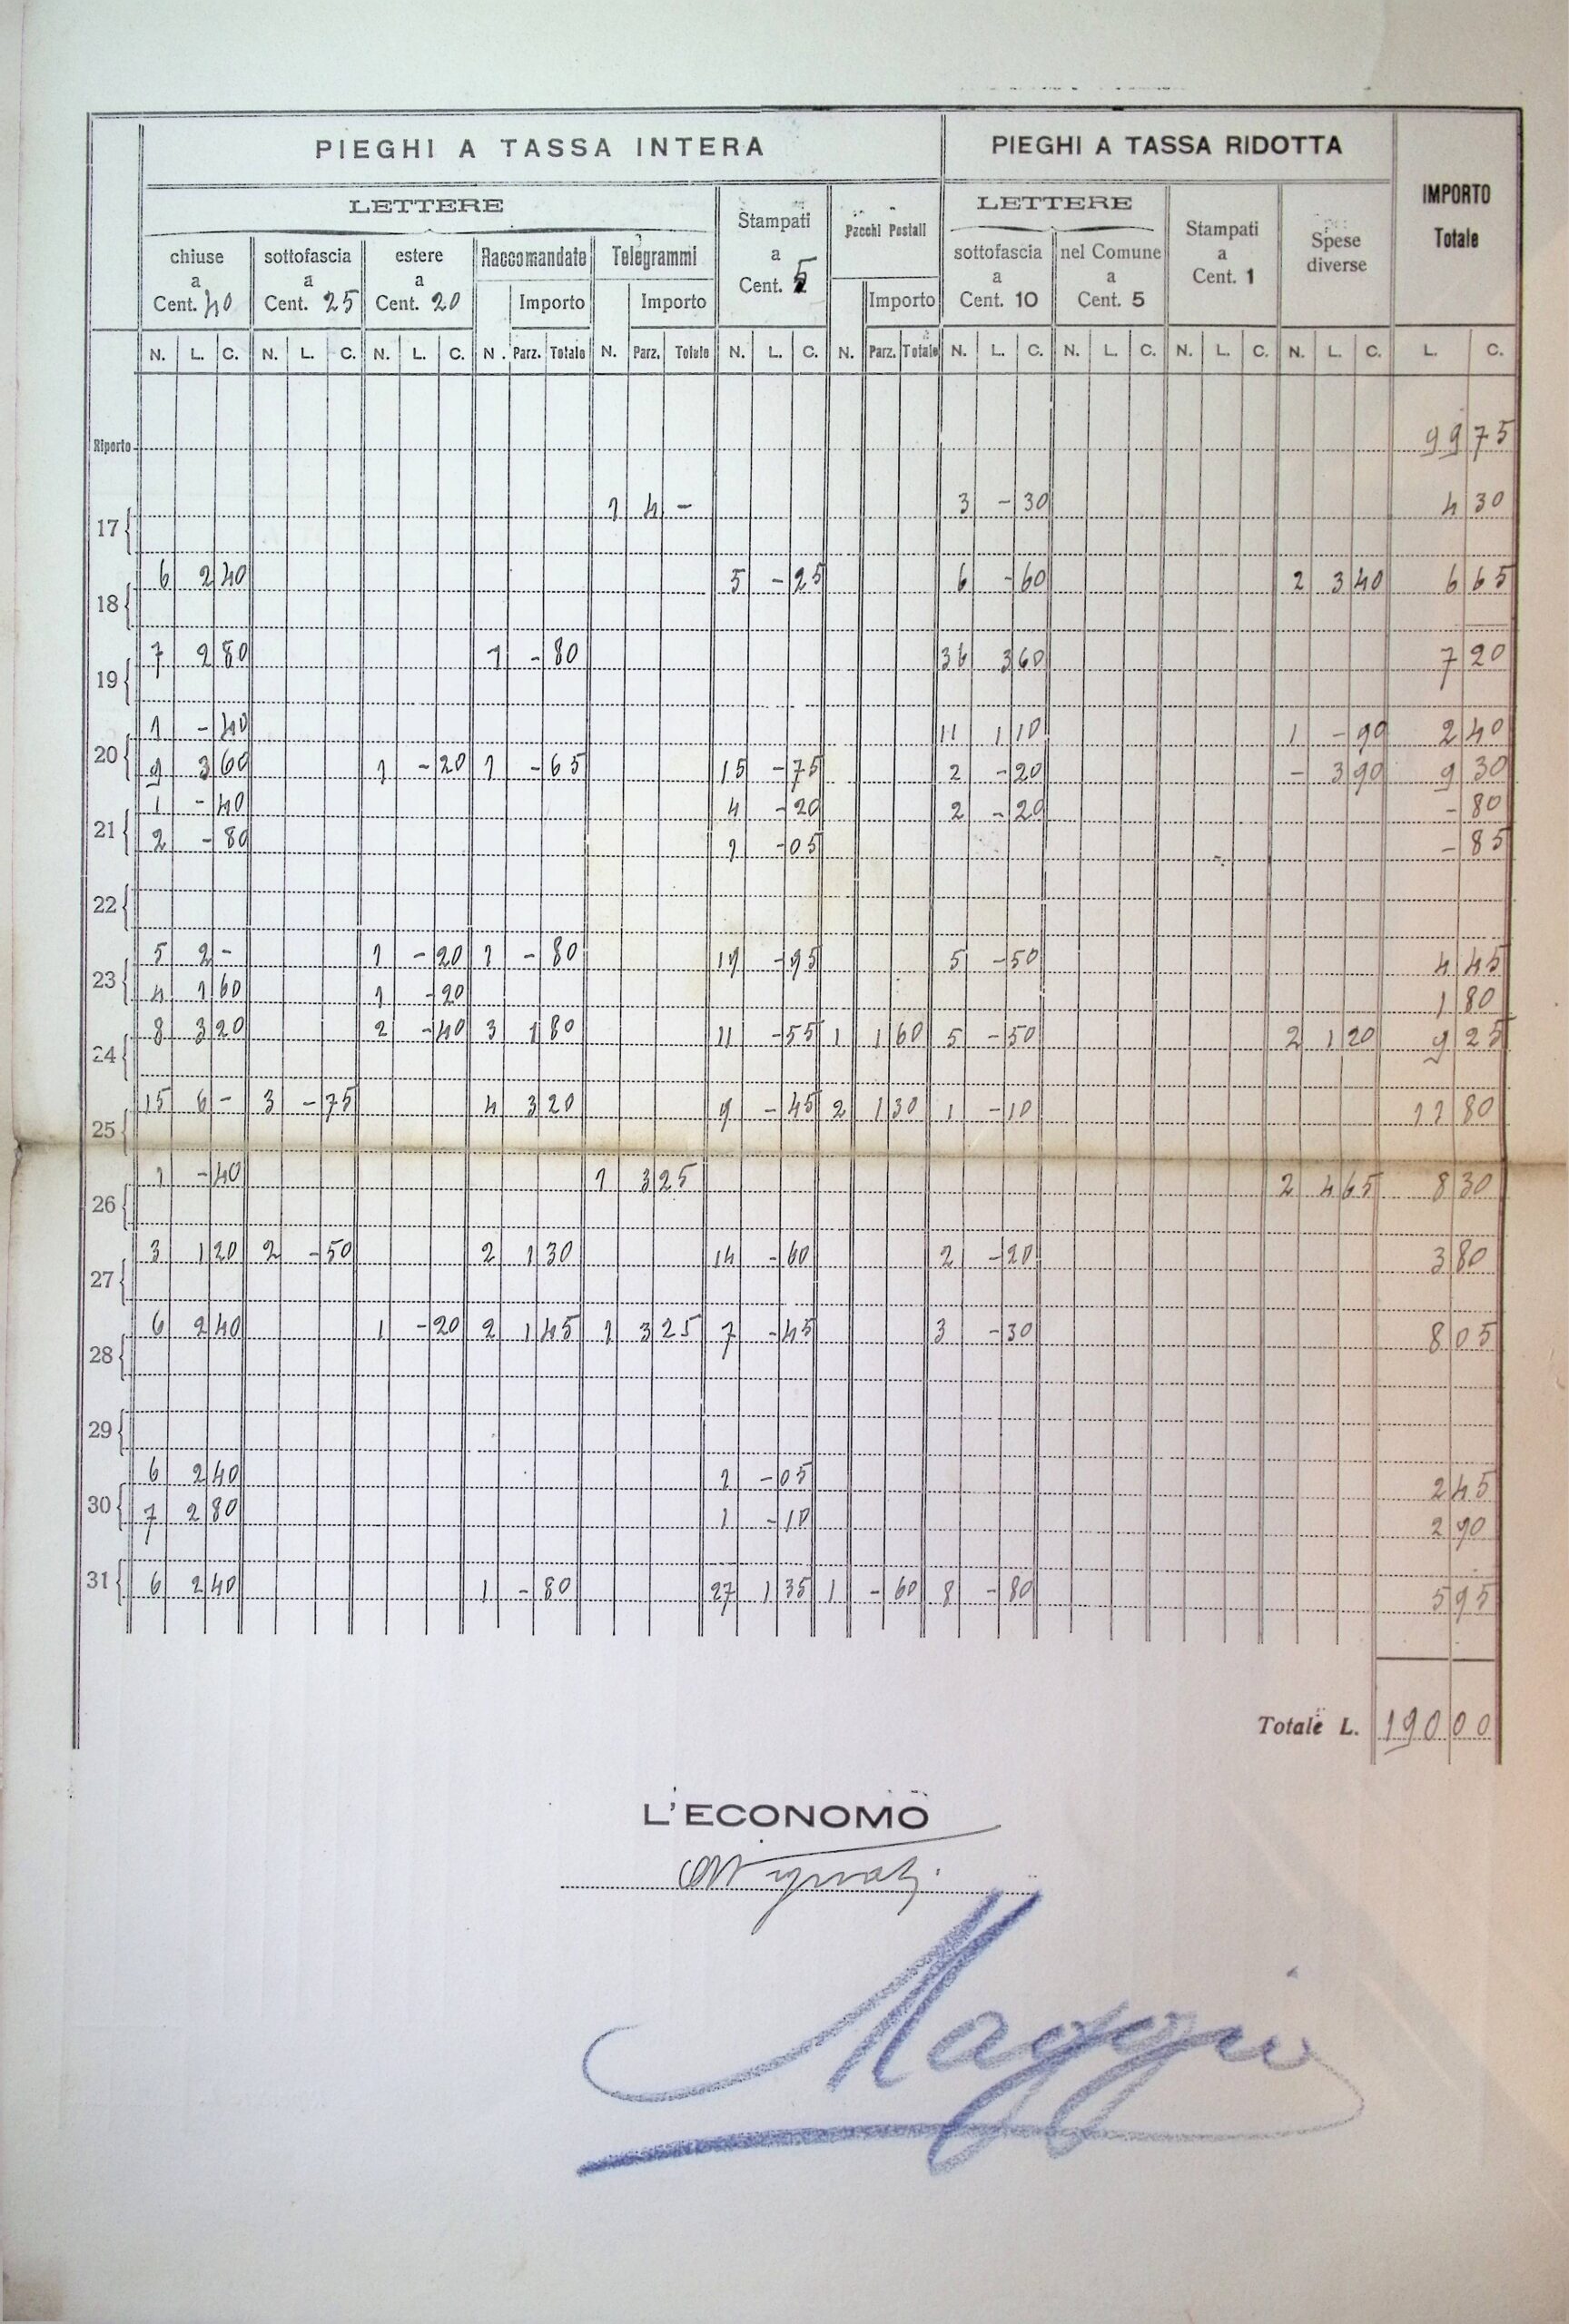 PIEGHI A TASSA INTERA PIEGHI A TASSA RIDOTTA IMPORTO Totale
LETTERE Stampati a Cent. 5 Pacchi Postali LETTERE Stampati a Cent. 1 Spese diverse
chiuse a Cent. 40 sottofascia a Cent. 25 estere a Cent. 20 Raccomandate Telegrammi sottofascia a Cent. 10 nel Comune a Cent. 5
Importo Importo Importo
N. L. C. N. L. C. N. L. C. N. Parz. Totale N. Parz. Totale N. L. C. N. Parz. Totale N. L. C. N. L. C. N. L. C. N. L. C. L. C.
Riporto 99 75
17 1 4 - 3 - 30 4 30
18 6 2 40 5 - 25 6 - 60 2 3 40 6 65
19 7 2 80 1 - 80 36 3 60 7 20
20 1 - 40 11 1 10 1 - 90 2 40
9 3 60 1 - 20 1 - 65 15 - 75 2 - 20 - 3 90 9 30
21 1 - 40 4 - 20 2 - 20 - 80
2 - 80 1 - 05 - 85
22
23 5 2 - 1 - 20 1 - 80 19 - 95 5 - 50 4 45
4 1 60 1 - 20 1 80
24 8 3 20 2 - 40 3 1 80 11 - 55 1 1 60 5 - 50 2 1 20 9 25
25 15 6 - 3 - 75 4 3 20 9 - 45 2 1 30 1 - 10 11 80
26 1 - 40 1 3 25 2 4 65 8 30
27 3 1 20 2 - 50 2 1 30 14 - 60 2 - 20 3 80
28 6 2 40 1 - 20 2 1 45 1 3 25 7 - 45 3 - 30 8 05
29
30 6 2 40 1 - 05 2 45
7 2 80 1 - 10 2 90
31 6 2 40 1 - 80 27 1 35 1 - 60 8 - 80 5 95
Totale L. 190 00
L'ECONOMO
Maggio